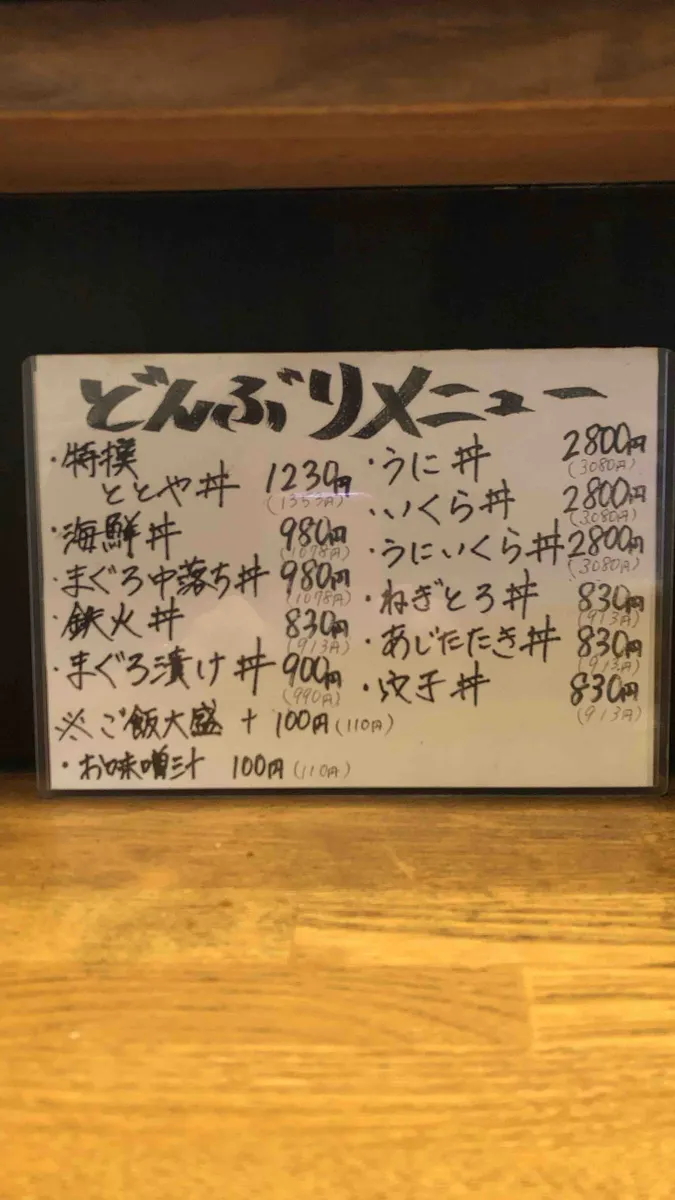 どんぶりメニュー
・特撰
ととや丼 1230円
(1353円)
・海鮮丼 980円
(1078円)
・まぐろ中落ち丼 980円
(1078円)
・鉄火丼 830円
(913円)
・まぐろ漬け丼 900円
(990円)
※ご飯大盛 + 100円(110円)
・お味噌汁 100円(110円)
・うに丼 2800円
(3080円)
・いくら丼 2800円
(3080円)
・うにいくら丼 2800円
(3080円)
・ねぎとろ丼 830円
(913円)
・あじたたき丼 830円
(913円)
・穴子丼 830円
(913円)